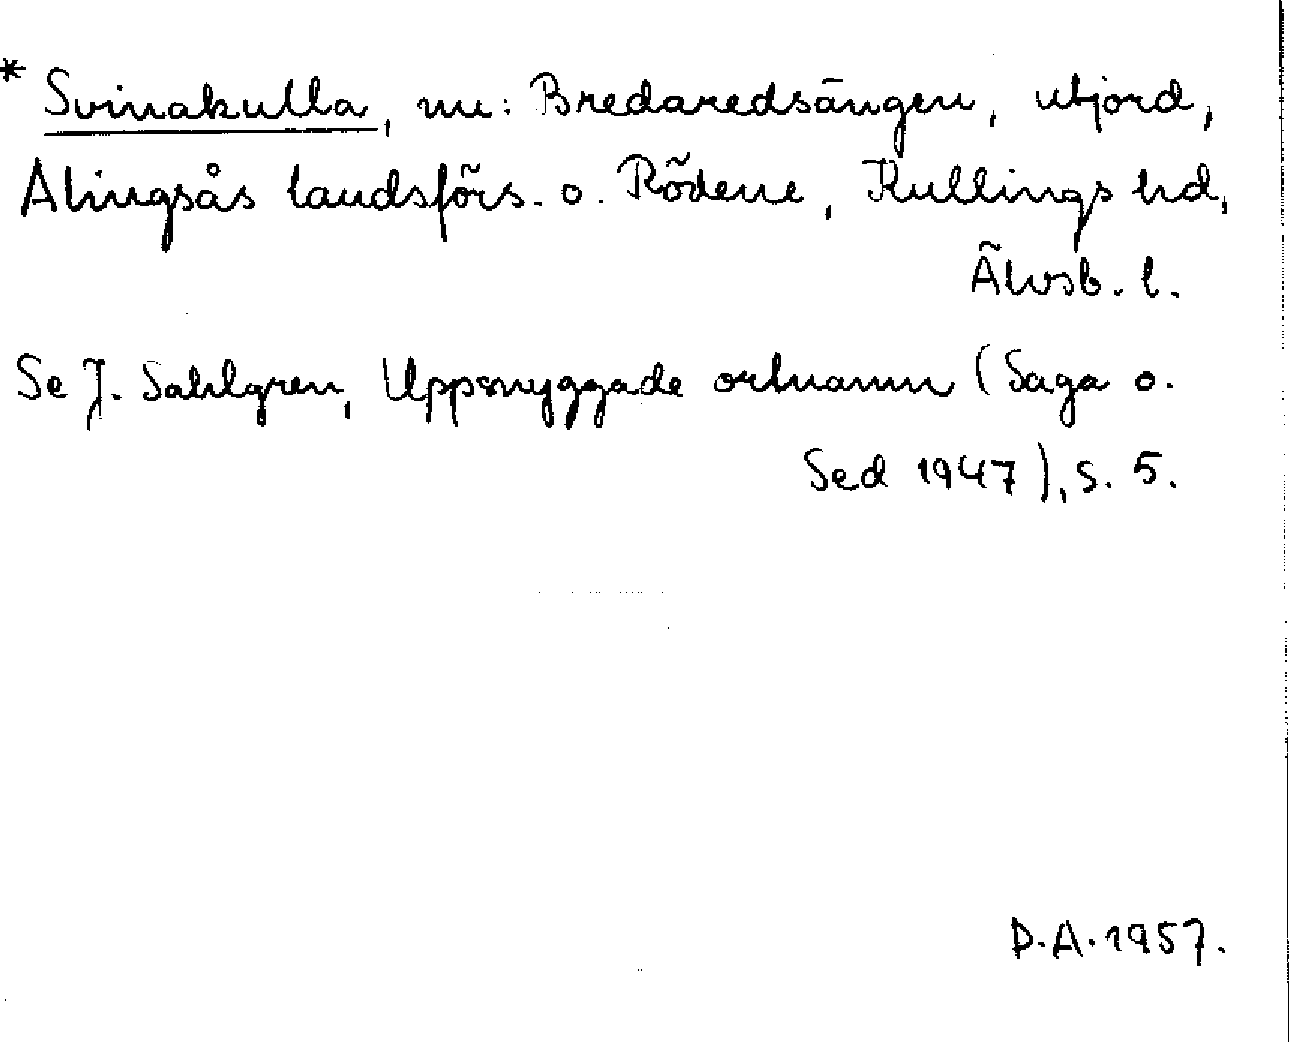 * Svinakulla, nu: Bredaredsängen, utjord,
Alingsås landsförs. o. Rödene, Kullings hd,
Älvsb. l.
Se J. Sahlgren, Uppsnyggade ortnamn (Saga o.
Sed 1947), s. 5.
D.A. 1957.